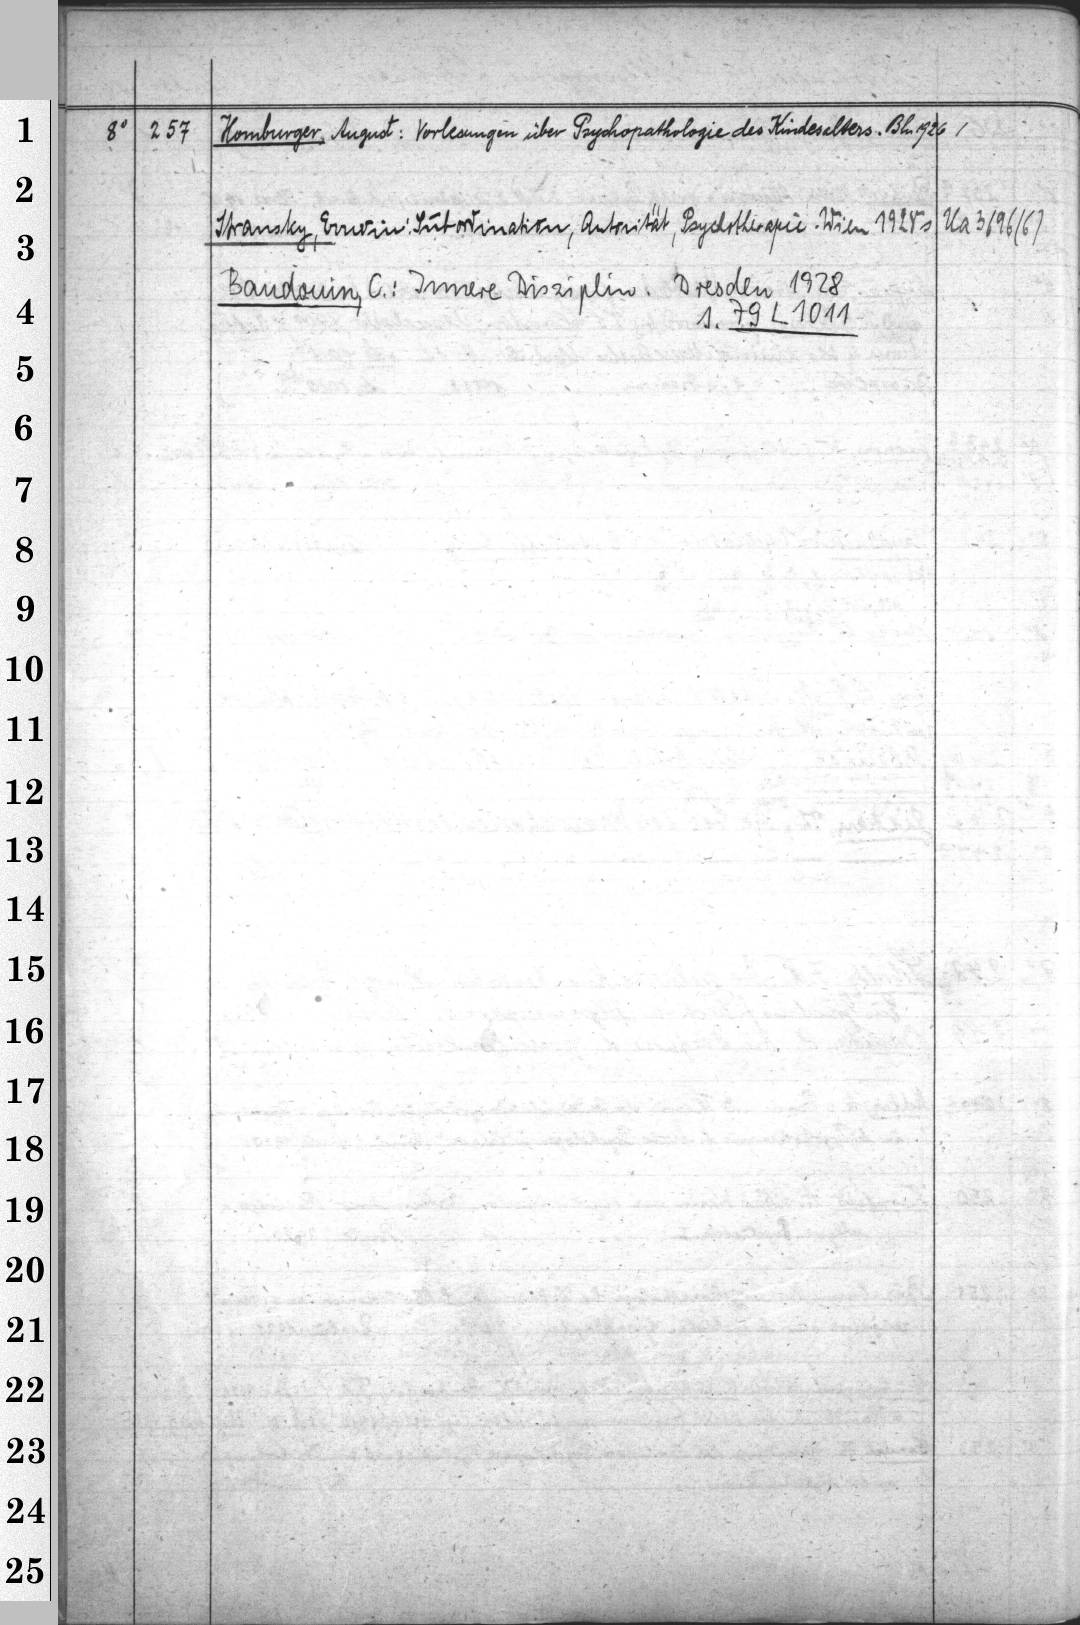 1 8° 257 Homburger, August: Vorlesungen über Psychopathologie des Kindesalters. Bln. 1926 /
2
3 Stransky, Erwin: Subordination, Autorität, Psychotherapie. Wien 1928 s Ua 3/96(6)
4 Baudouin, C.: Innere Disziplin. Dresden 1928
s. 79 L 1011
5
6
7
8
9
10
11
12
13
14
15
16
17
18
19
20
21
22
23
24
25